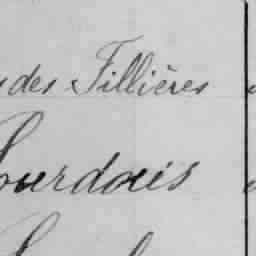 des Fillières
ourdais